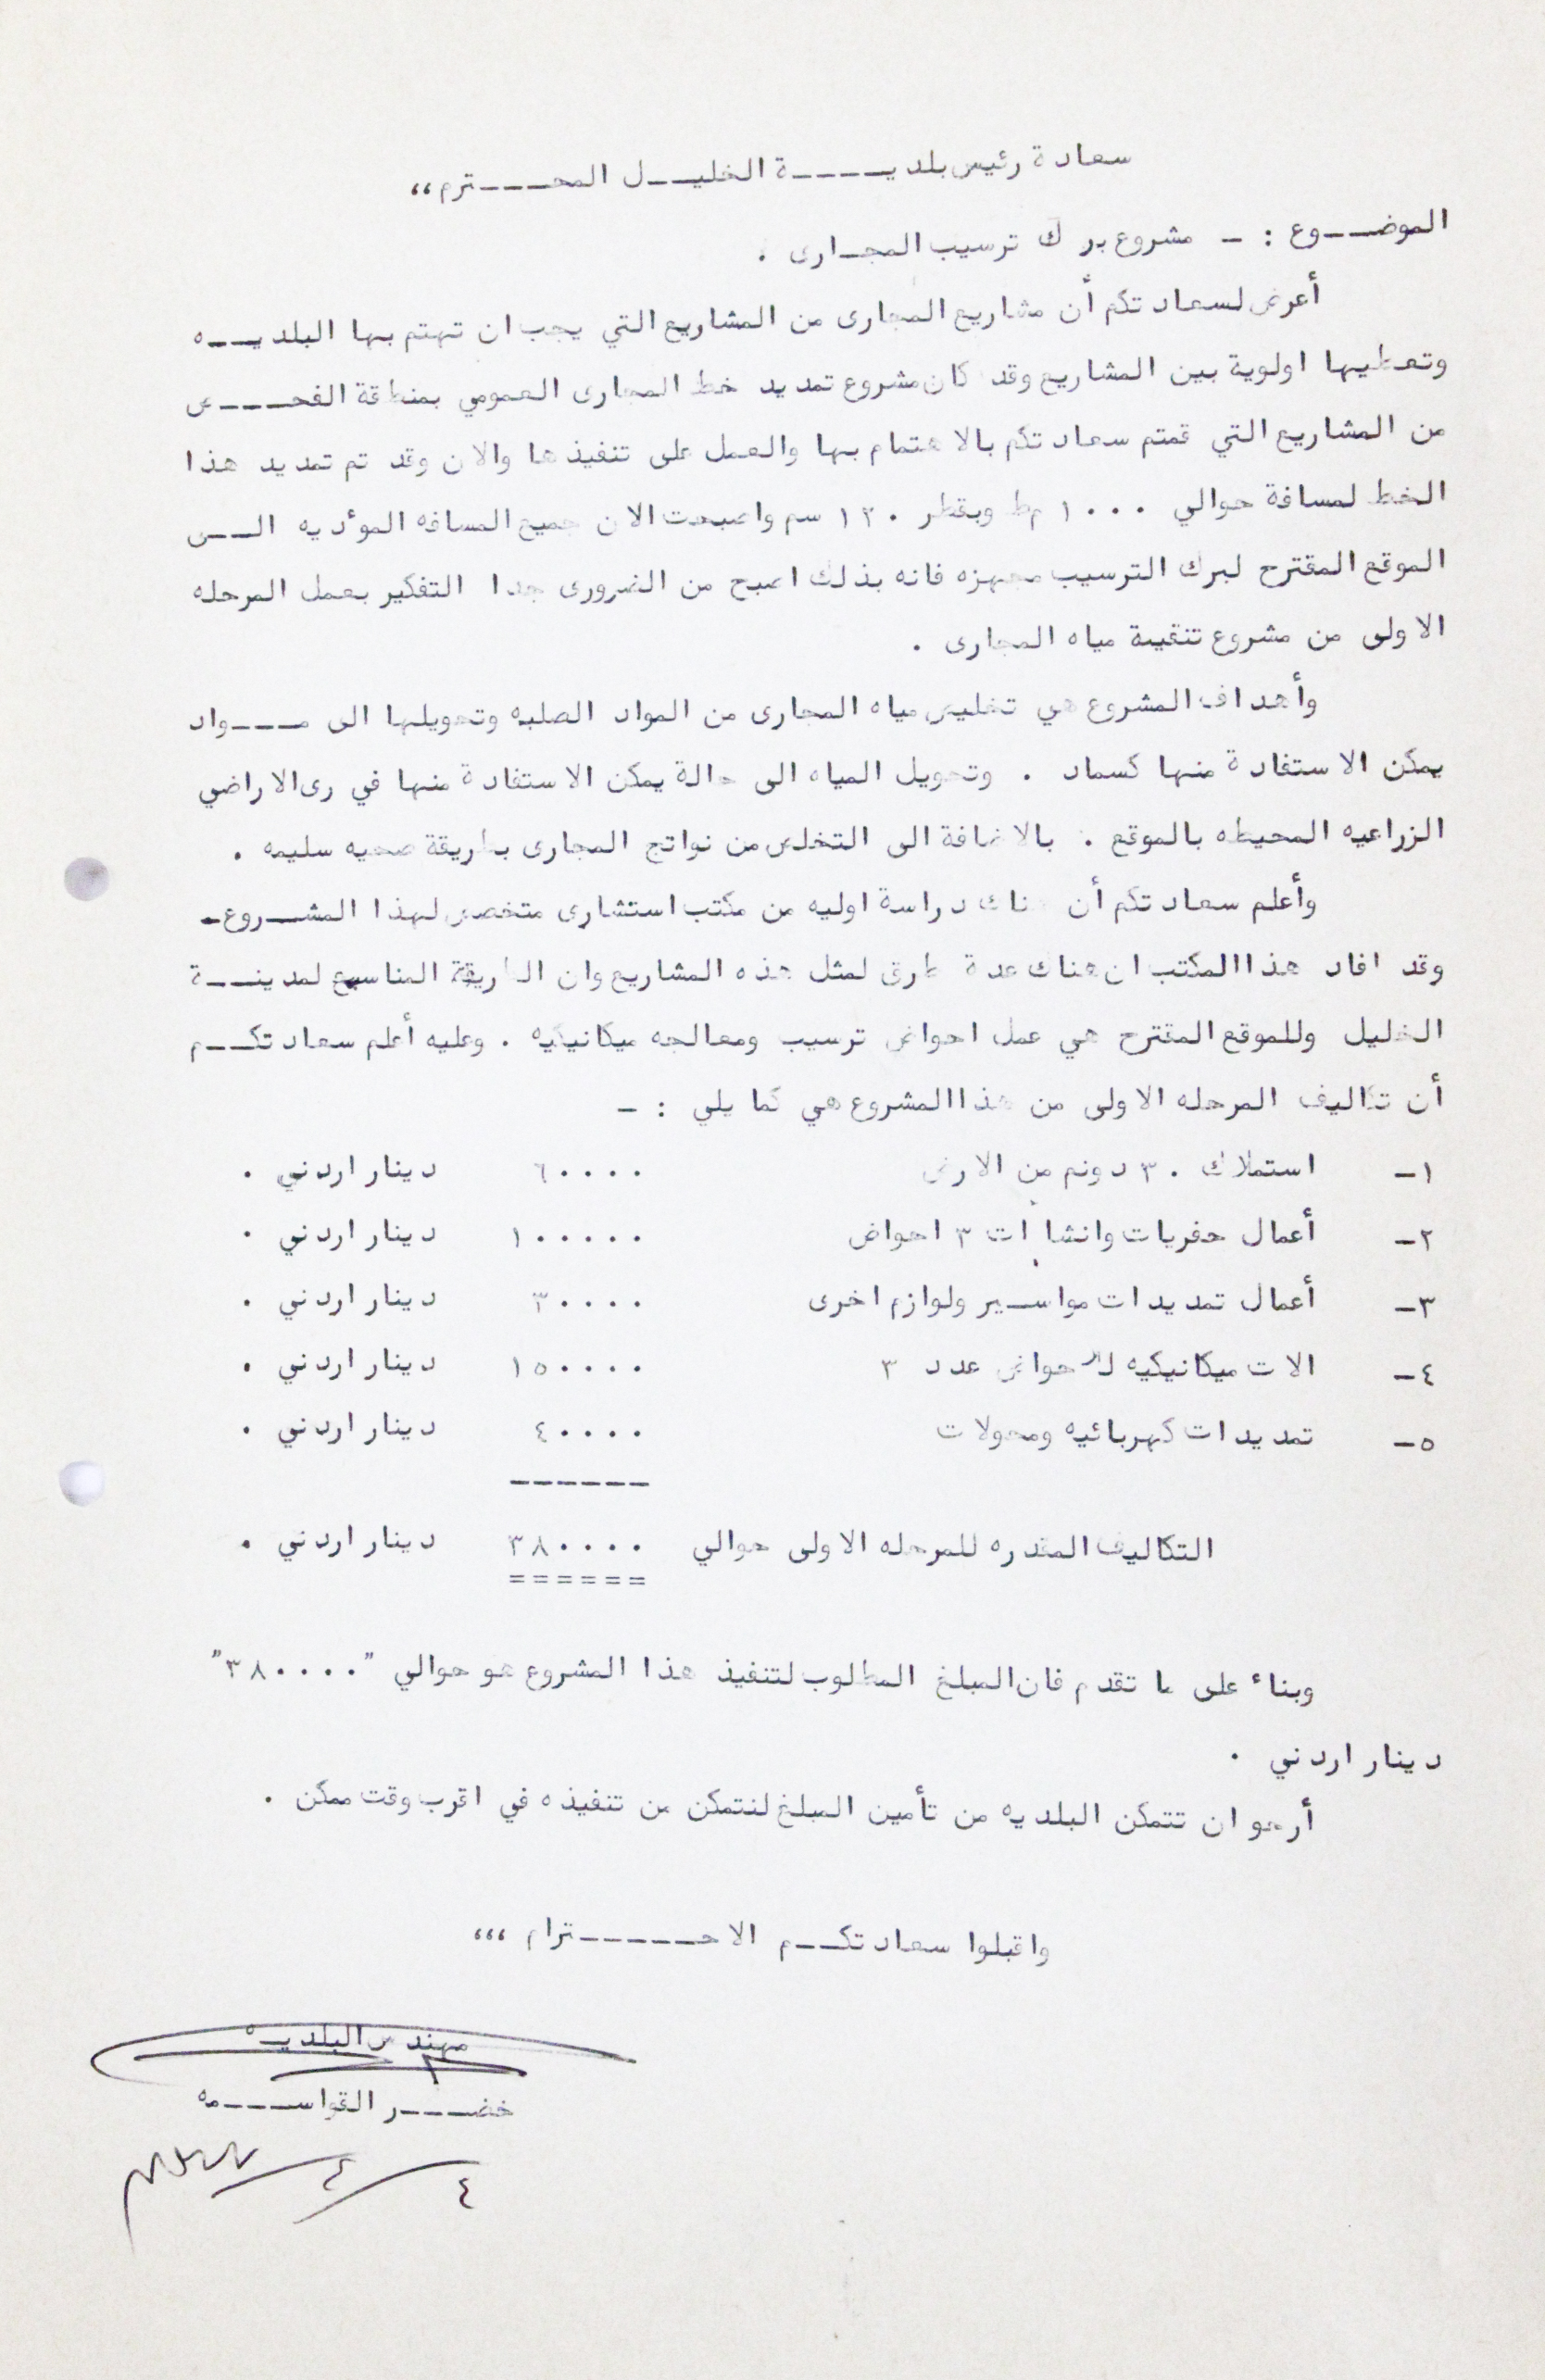 سعادة رئيس بلديـــــة الخليـــل المحـــــترم،،
الموضـــوع : - مشروع برك ترسيب المجـارى .
أعرض لسعادتكم أن مشاريع المجارى من المشاريع التي يجب ان تهتم بها البلديـــه
وتعطيها اولوية بين المشاريع وقد كان مشروع تمديد خط المجارى العمومي بمنطقة الفحـــــص
من المشاريع التي قمتم سعادتكم بالاهتمام بها والعمل على تنفيذها والان وقد تم تمديد هذا
الخط لمسافة حوالي ١٠٠٠ م٠ط وبقطر ١٢٠ سم واصبحت الان جميع المسافه الموٴديه الـــى
الموقع المقترح لبرك الترسيب مجهزه فانه بذلك اصبح من الضرورى جدا التفكير بعمل المرحله
الاولى من مشروع تنقية مياه المجارى .
وأهداف المشروع هي تخليص مياه المجارى من المواد الصلبه وتحويلها الى مــــواد
يمكن الاستفادة منها كسماد . وتحويل المياه الى حالة يمكن الاستفادة منها في رى الاراضي
الزراعيه المحيطه بالموقع . بالاضافة الى التخلص من نواتج المجارى بطريقة صحيه سليمه .
وأعلم سعادتكم أن هناك دراسة اوليه من مكتب استشارى متخصص لهذا المشـــروع-
وقد افاد هذا المكتب ان هناك عدة طرق لمثل هذه المشاريع وان الطريقة المناسبع لمدينـــة
الخليل وللموقع المقترح هي عمل احواض ترسيب ومعالجه ميكانيكيه . وعليه أعلم سعادتكـــم
أن تكاليف المرحله الاولى من هذا المشروع هي كما يلي : -
١- استملاك ٣٠ دونم من الارض ٦٠٠٠٠ دينار اردني .
٢- أعمال حفريات وانشاءات ٣ احواض ١٠٠٠٠٠ دينار اردني .
٣- أعمال تمديدات مواســير ولوازم اخرى ٣٠٠٠٠ دينار اردني .
٤- الات ميكانيكيه للاحواض عدد ٣ ١٥٠٠٠٠ دينار اردني .
٥- تمديدات كهربائيه ومحولات ٤٠٠٠٠ دينار اردني .
------
التكاليف المقدره للمرحله الاولى حوالي ٣٨٠٠٠٠ دينار اردني .
======
وبناء على ما تقدم فان المبلغ المطلوب لتنفيذ هذا المشروع هو حوالي "٣٨٠٠٠٠"
دينار اردني .
أرجو ان تتمكن البلديه من تأمين المبلغ لنتمكن من تنفيذه في اقرب وقت ممكن .
واقبلوا سعادتكـــم الاحــــــترام ،،،
مهندس البلديــه
خضــــر القواســــمه